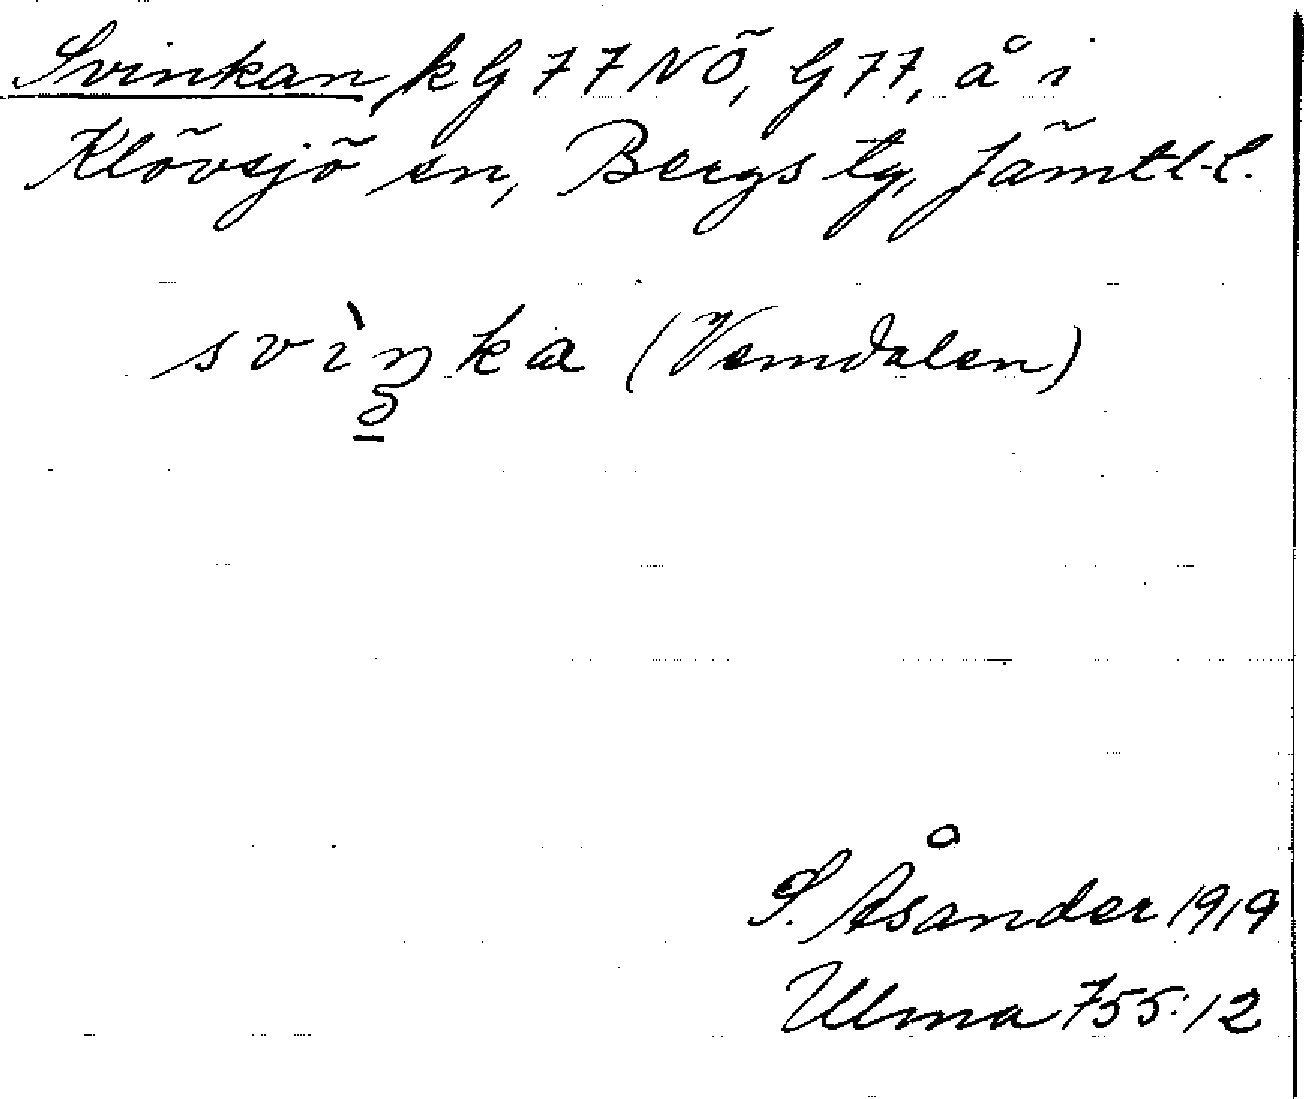 Svinkan, kG 77 NÖ, G 77, å i
Klövsjö sn, Bergs tg, Jämtl. l.
svìŋka (Vemdalen)
S. Åsander 1919
Ulma 755:12